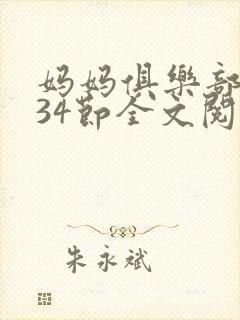 妈妈俱樂部
34節全文閱
朱永斌